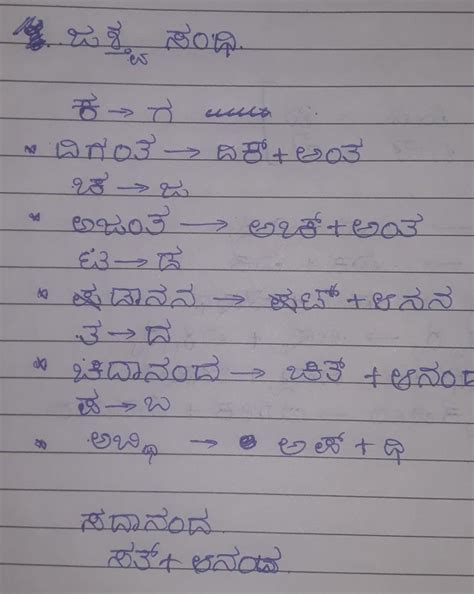 ಜಶ್ತ್ವ ಸಂಧಿ.
ಕ → ಗ
* ದಿಗಂತ → ದಿಕ್ + ಅಂತ
ಚ → ಜ
* ಅಜಂತ → ಅಚ್ + ಅಂತ
ಟ → ಡ
* ಷಡಾನನ → ಷಟ್ + ಆನನ
ತ → ದ
* ಚಿದಾನಂದ → ಚಿತ್ + ಆನಂದ
ಪ → ಬ
* ಅಬ್ಧಿ → ಅಪ್ + ಧಿ
ಸದಾನಂದ
ಸತ್ + ಆನಂದ